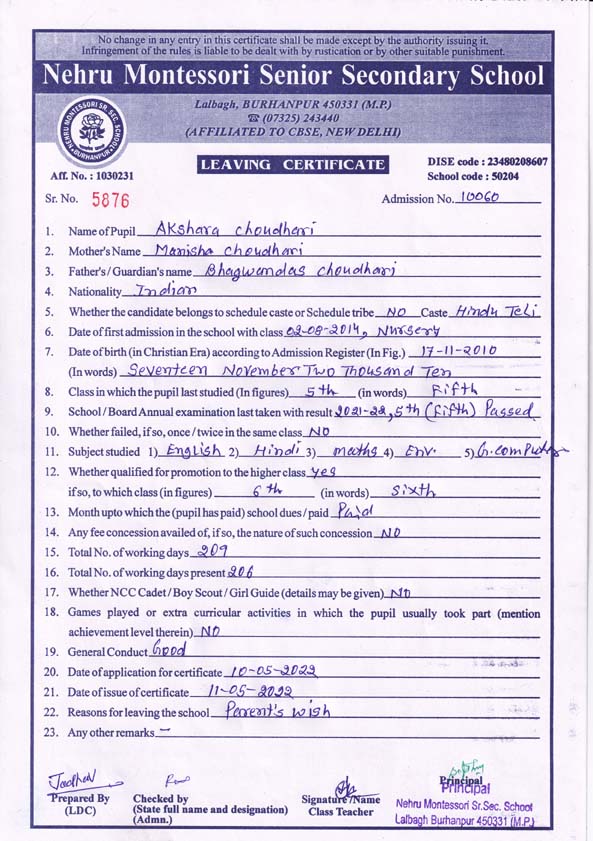 No change in any entry in this certificate shall be made except by the authority issuing it.
Infringement of the rules is liable to be dealt with by rustication or by other suitable punishment.
Nehru Montessori Senior Secondary School
Lalbagh, BURHANPUR 450331 (M.P.)
☎ (07325) 243440
(AFFILIATED TO CBSE, NEW DELHI)
NEHRU MONTESSORI SR. SEC. SCHOOL
BURHANPUR
LEAVING CERTIFICATE
DISE code : 23480208607
Aff. No. : 1030231
School code : 50204
Sr. No. 5876
Admission No. 10060
1. Name of Pupil Akshara Choudhari
2. Mother's Name Manisha Choudhari
3. Father's / Guardian's name Bhagwandas Choudhari
4. Nationality Indian
5. Whether the candidate belongs to schedule caste or Schedule tribe NO Caste Hindu Teli
6. Date of first admission in the school with class 02-08-2014, Nursery
7. Date of birth (in Christian Era) according to Admission Register (In Fig.) 17-11-2010
(In words) Seventeen November Two Thousand Ten
8. Class in which the pupil last studied (In figures) 5th (in words) Fifth
9. School / Board Annual examination last taken with result 2021-22, 5th (Fifth) Passed
10. Whether failed, if so, once / twice in the same class NO
11. Subject studied 1) English 2) Hindi 3) maths 4) Env. 5) G.computer
12. Whether qualified for promotion to the higher class yes
if so, to which class (in figures) 6th (in words) Sixth
13. Month upto which the (pupil has paid) school dues / paid Paid
14. Any fee concession availed of, if so, the nature of such concession NO
15. Total No. of working days 209
16. Total No. of working days present 206
17. Whether NCC Cadet / Boy Scout / Girl Guide (details may be given) NO
18. Games played or extra curricular activities in which the pupil usually took part (mention
achievement level therein) NO
19. General Conduct Good
20. Date of application for certificate 10-05-2022
21. Date of issue of certificate 11-05-2022
22. Reasons for leaving the school Parent's wish
23. Any other remarks —
Prepared By
(LDC)
Checked by
(State full name and designation)
(Admn.)
Signature /Name
Class Teacher
Principal
Principal
Nehru Montessori Sr.Sec. School
Lalbagh Burhanpur 450331 (M.P.)